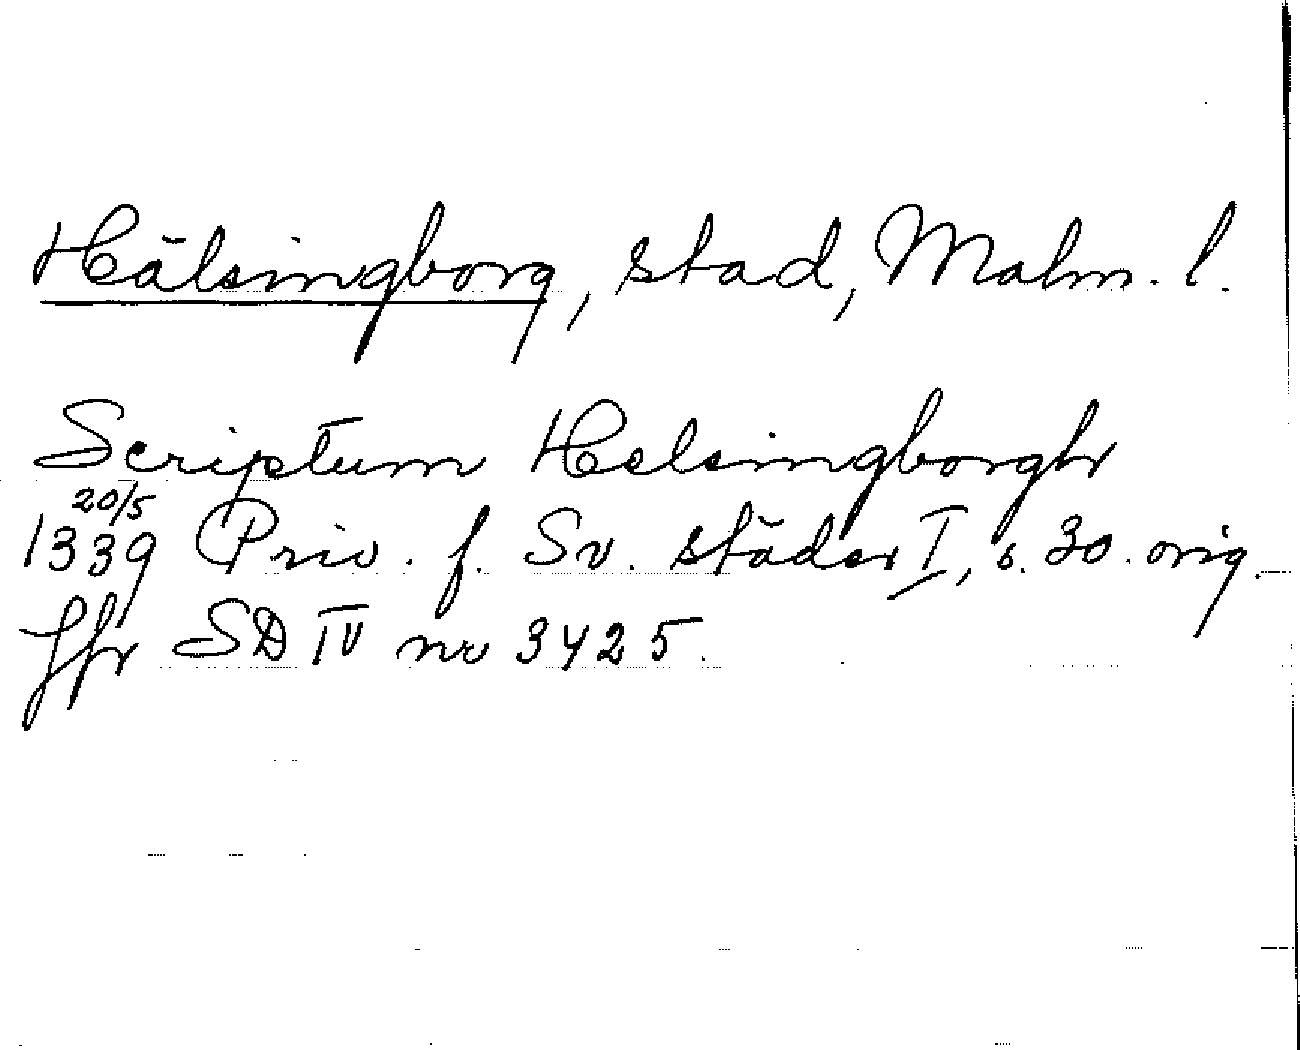 Hälsingborg, stad, Malm. l.
Scriptum Helsingborgh
20/5
1339 Priv. f. Sv. städer I, s. 30. orig.
Jfr SD IV nr 3425.